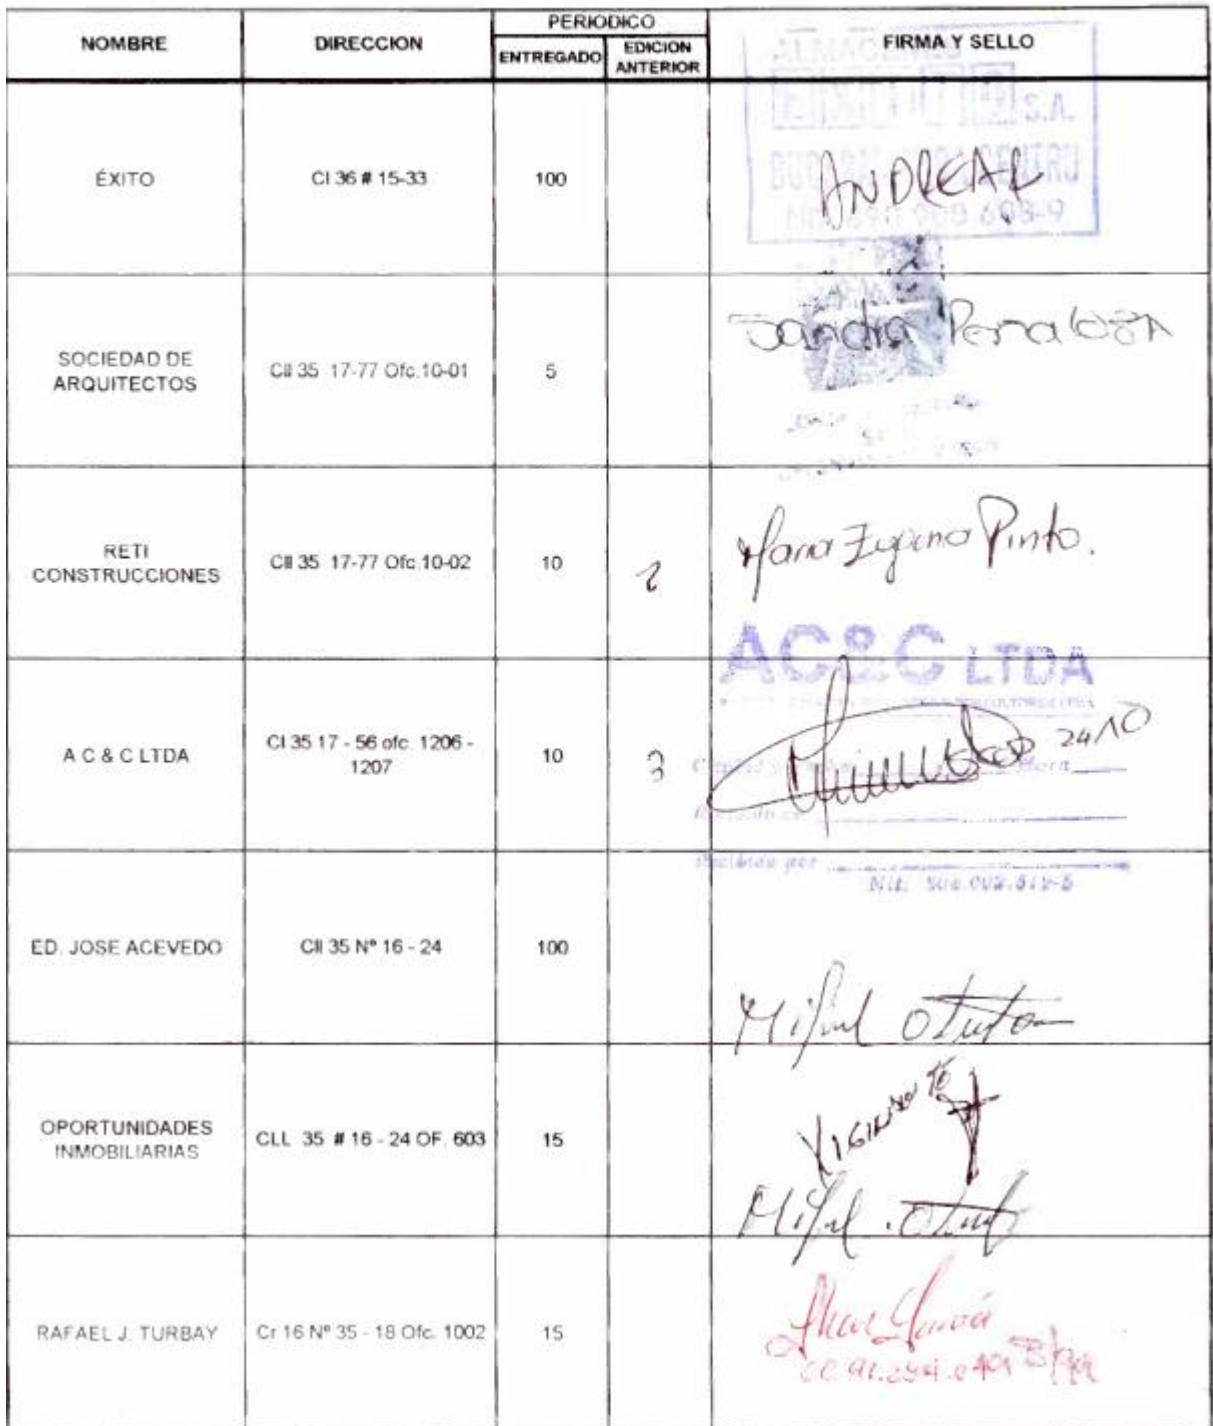 NOMBRE
DIRECCION
PERIODICO
ENTREGADO
EDICION
ANTERIOR
FIRMA Y SELLO
ÉXITO
Cl 36 # 15-33
100
ALMACENES
EXITO S.A.
ANDREA R
SOCIEDAD DE
ARQUITECTOS
Cll 35 17-77 Ofc.10-01
5
Sandra Peñaloza
RETI
CONSTRUCCIONES
Cll 35 17-77 Ofc.10-02
10
2
Maria Eugenia Pinto.
A C & C LTDA
Cl 35 17 - 56 ofc. 1206 -
1207
10
3
AC&C LTDA
24/10
Recibido por
Nit.
ED. JOSE ACEVEDO
Cll 35 Nº 16 - 24
100
OPORTUNIDADES
INMOBILIARIAS
CLL 35 # 16 - 24 OF. 603
15
RAFAEL J. TURBAY
Cr 16 Nº 35 - 18 Ofc. 1002
15